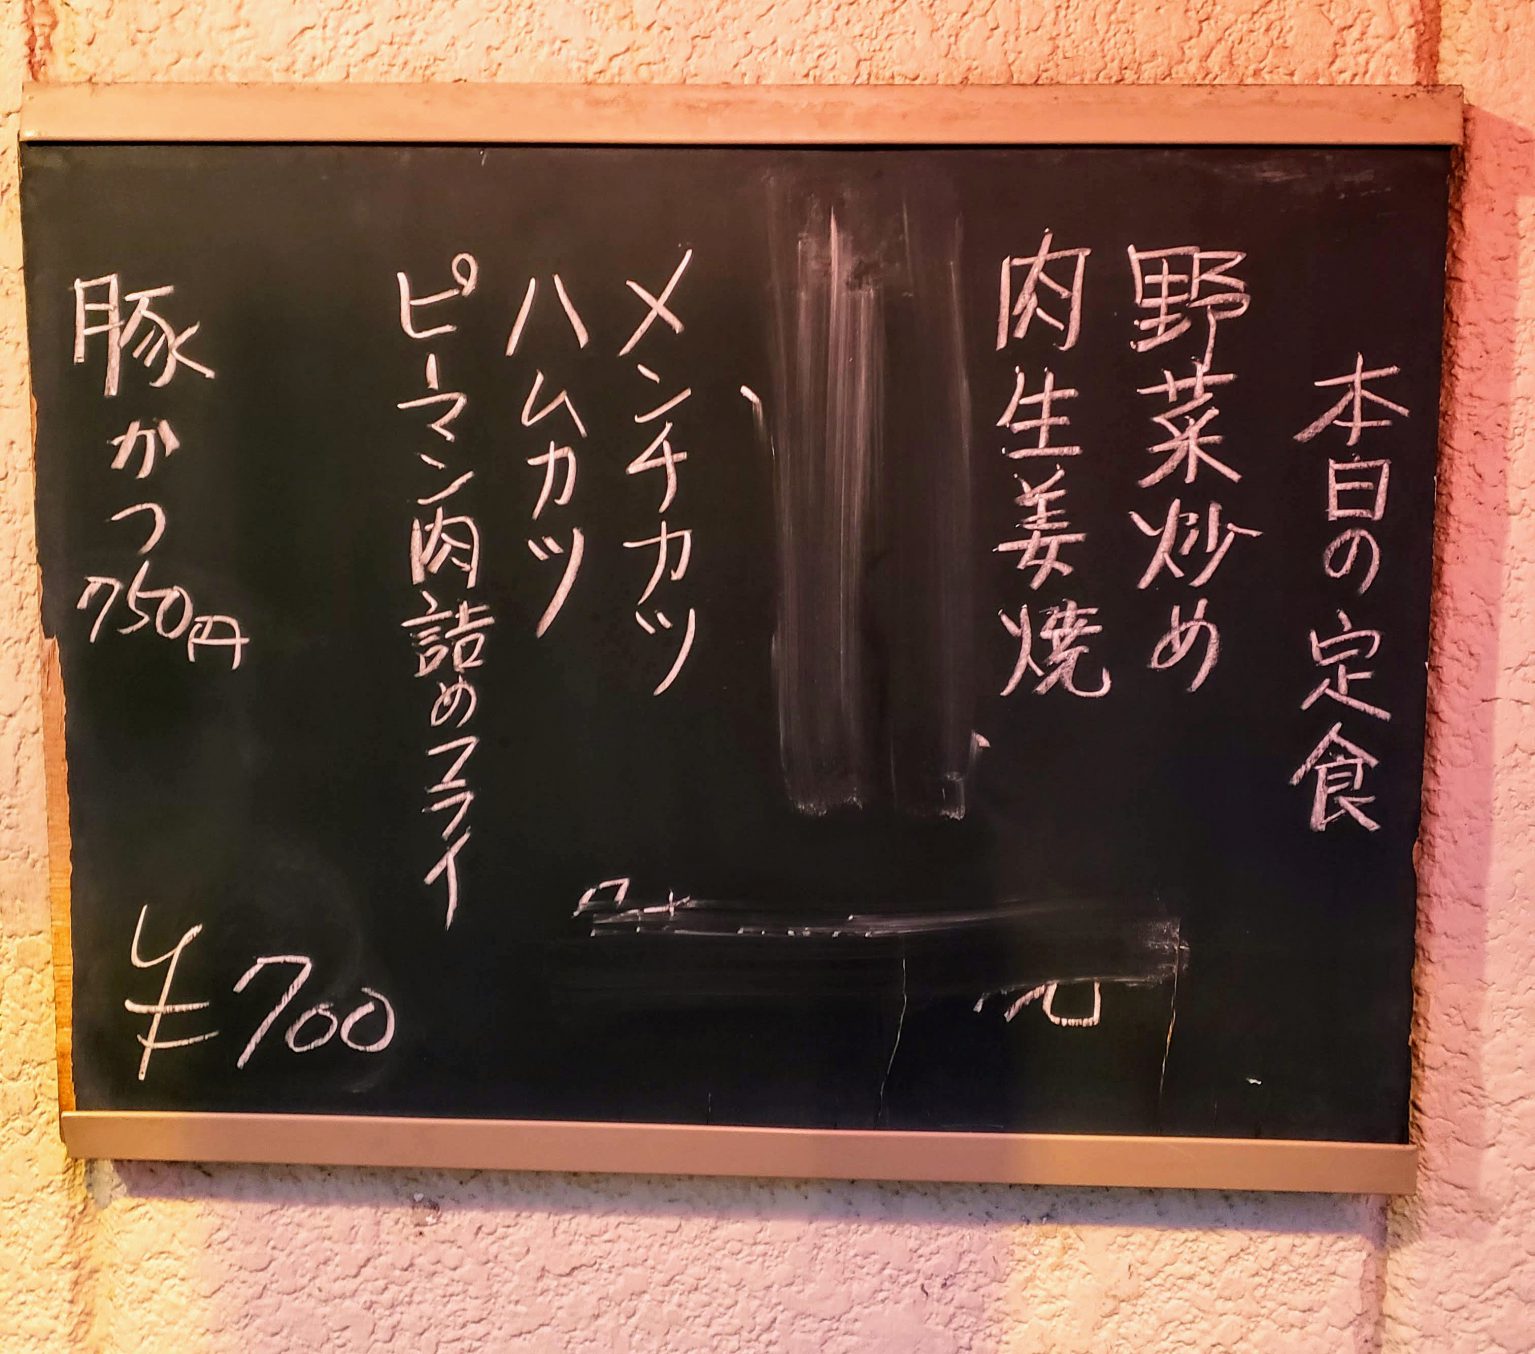 本日の定食
野菜炒め
肉生姜焼
メンチカツ
ハムカツ
ピーマン肉詰めフライ
豚かつ750円
¥700